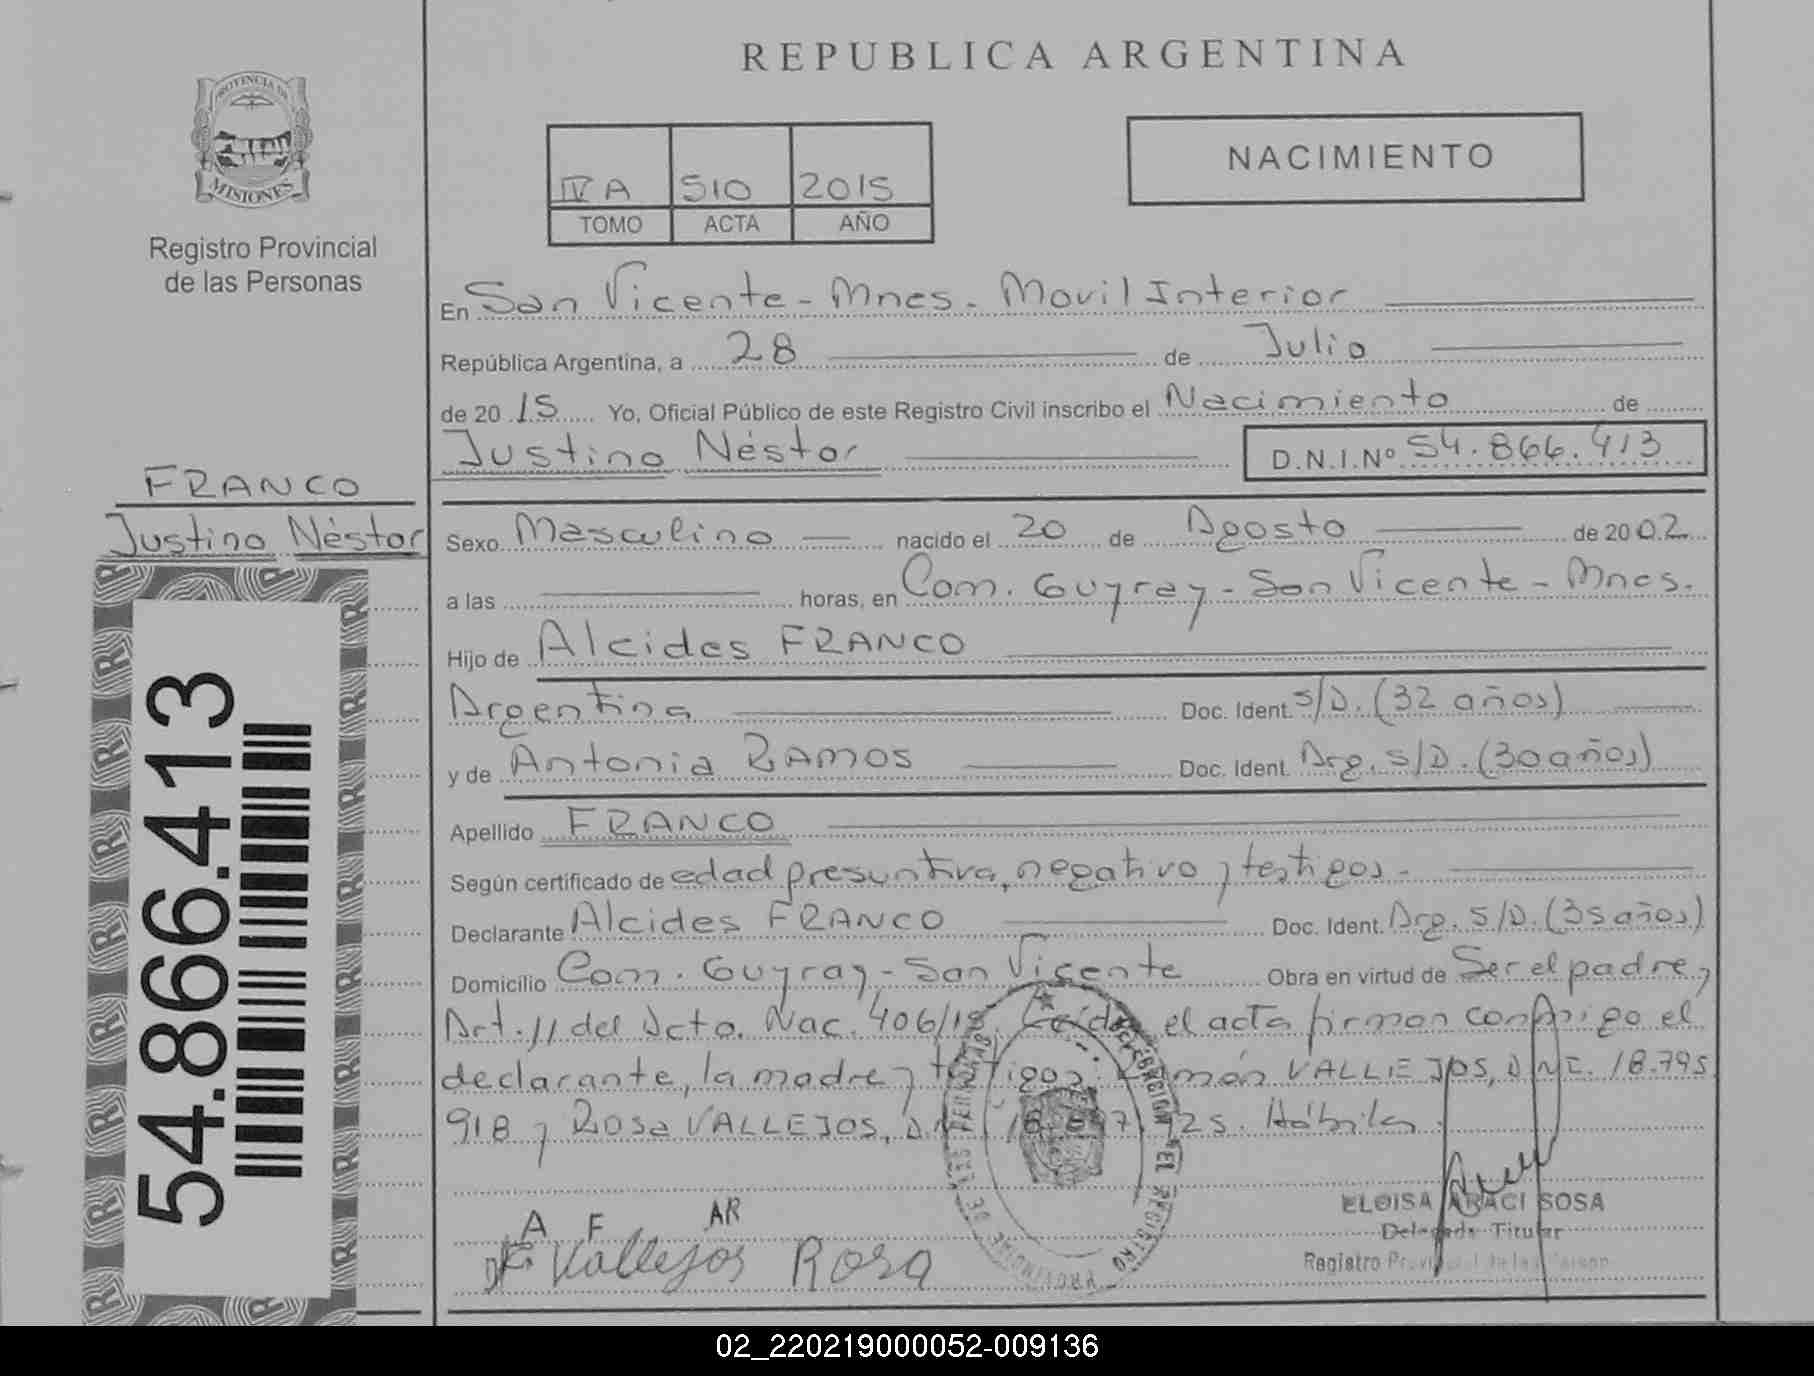 REPUBLICA ARGENTINA
PROVINCIA DE
MISIONES
Registro Provincial
de las Personas
IV A 510 2015
TOMO ACTA AÑO
NACIMIENTO
En San Vicente - Mnes. Movil Interior
República Argentina, a 28 de Julio
de 20 15 Yo, Oficial Público de este Registro Civil inscribo el Nacimiento de
Justino Néstor D.N.I.Nº 54.866.413
FRANCO
Justino Néstor
Sexo Masculino nacido el 20 de Agosto de 2002
a las horas, en Com. Guyray - San Vicente - Mnes.
Hijo de Alcides FRANCO
Argentina Doc. Ident. S/D. (32 años)
y de Antonia RAMOS Doc. Ident. Arg. S/D. (30 años)
Apellido FRANCO
Según certificado de edad presuntiva, negativo y testigos.
Declarante Alcides FRANCO Doc. Ident. Arg. S/D. (35 años)
Domicilio Com. Guyray - San Vicente Obra en virtud de Ser el padre y
Art. 11 del Dcto. Nac. 406/15. Leída el acta firman conmigo el
declarante, la madre y testigos: Ramón VALLEJOS, DNI. 18.795
918 y Rosa VALLEJOS, 725. Hábiles.
54.866.413
A F AR
Vallejos Rosa
ELOISA ARACI SOSA
Delegada Titular
Registro Provincial de las Person
02_220219000052-009136